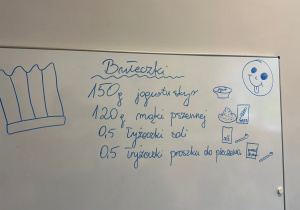 Bułeczki
150g jogurtu skyr
120g mąki pszennej
0,5 łyżeczki soli
0,5 łyżeczki proszku do pieczenia